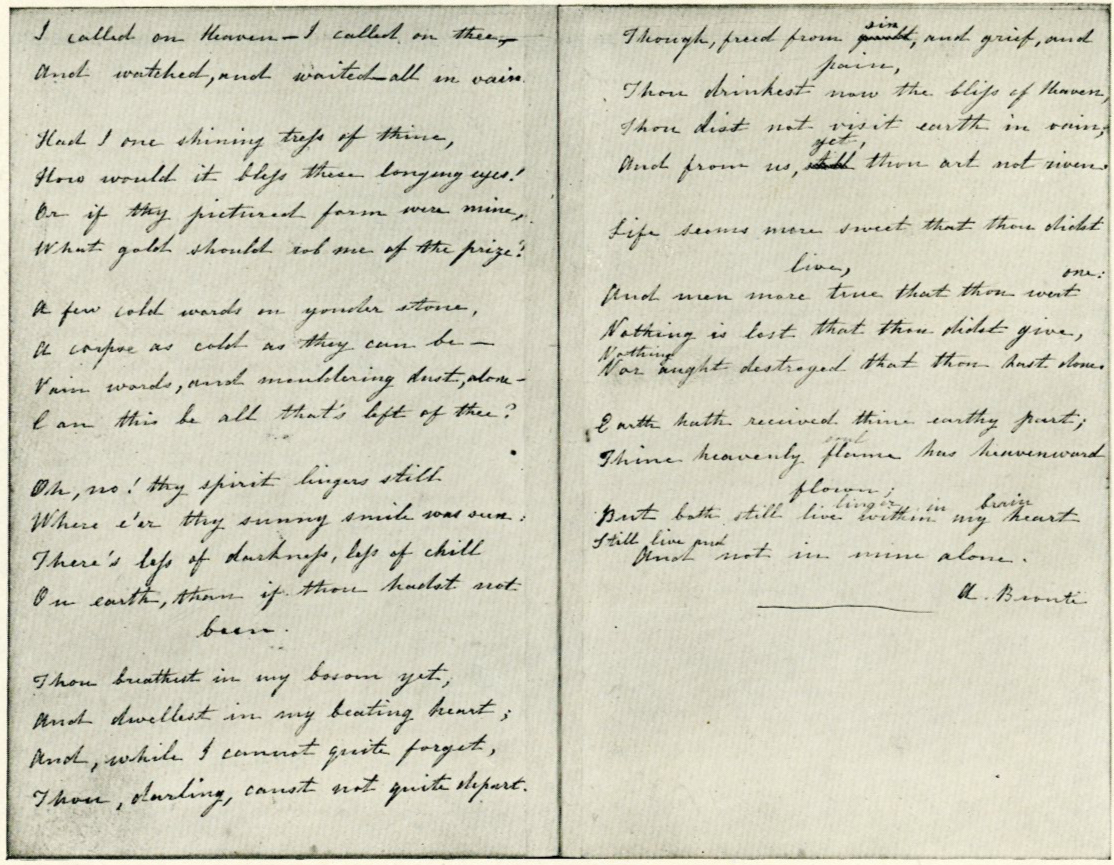 I called on Heaven — I called on thee,—
And watched, and waited — all in vain.
Had I one shining tress of thine,
How would it bless these longing eyes!
Or if thy pictured form were mine,
What gold should rob me of the prize?
A few cold words on yonder stone,
A corpse as cold as they can be —
Vain words, and mouldering dust, alone —
Can this be all that's left of thee?
Oh, no! thy spirit lingers still
Where e'er thy sunny smile was seen:
There's less of darkness, less of chill
On earth, than if thou hadst not
been.
Thou breathest in my bosom yet,
And dwellest in my beating heart;
And, while I cannot quite forget,
Thou, darling, canst not quite depart.
sin
Though, freed from, and grief, and
pain,
Thou drinkest now the bliss of Heaven,
Thou dist not visit earth in vain;
yet,
And from us, still thou art not riven.
Life seems more sweet that thou didst
live,
one:
And men more true that thou wert
Nothing is lost that thou didst give,
Nothing
Nor aught destroyed that thou hast done.
Earth hath received thine earthy part;
soul
Thine heavenly flame has heavenward
flown;
linger in brain
But both still live within my heart
Still live and
And not in mine alone.
A. Brontë